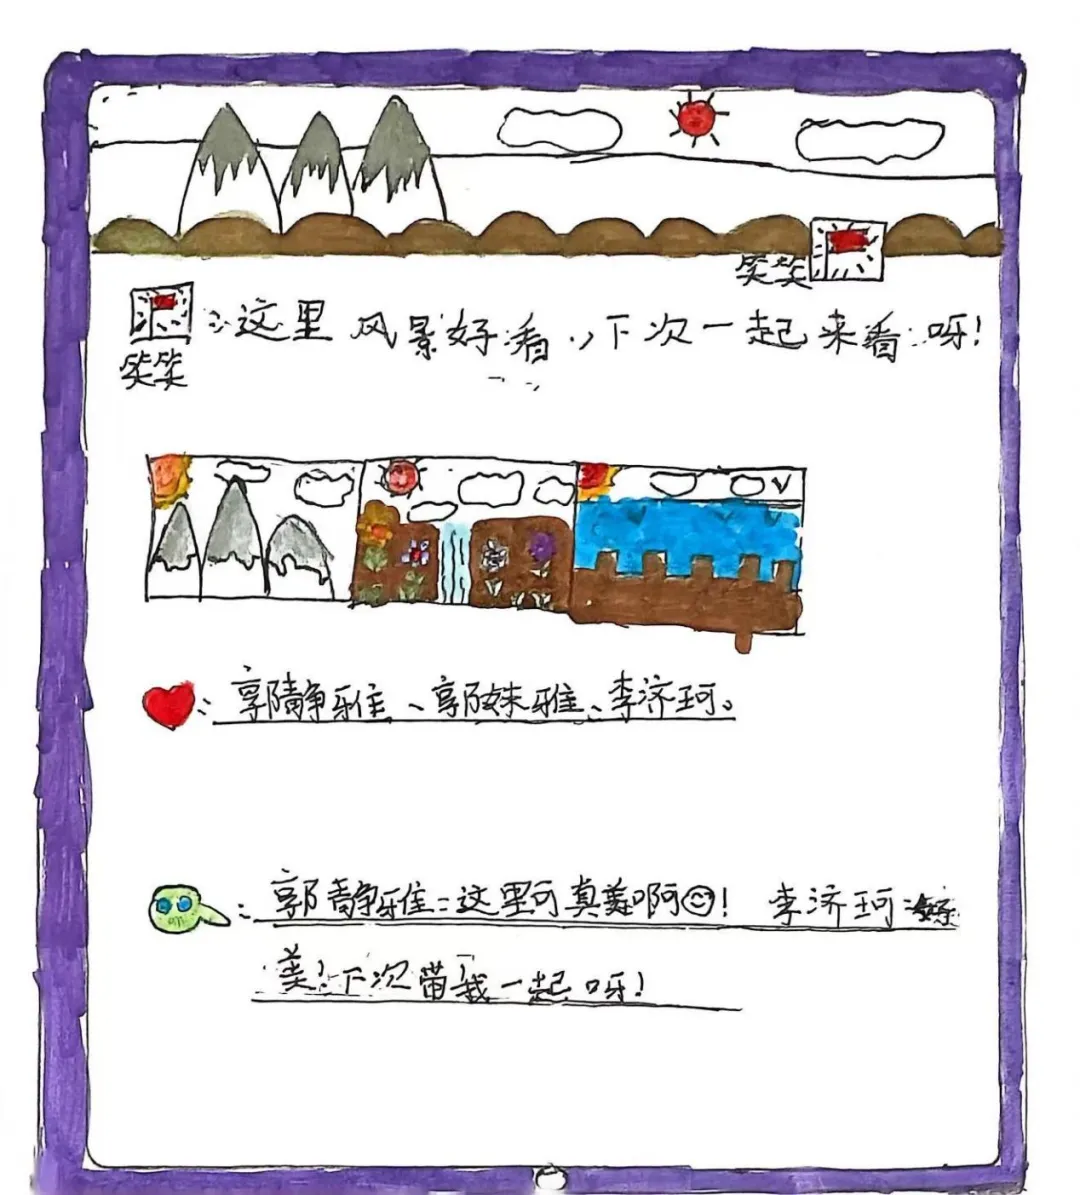 笑笑
:这里风景好看,下次一起来看呀!
笑笑
:郭静雅、郭姝雅、李济珂。
:郭静雅:这里可真美啊!李济珂:好
美!下次带我一起呀!